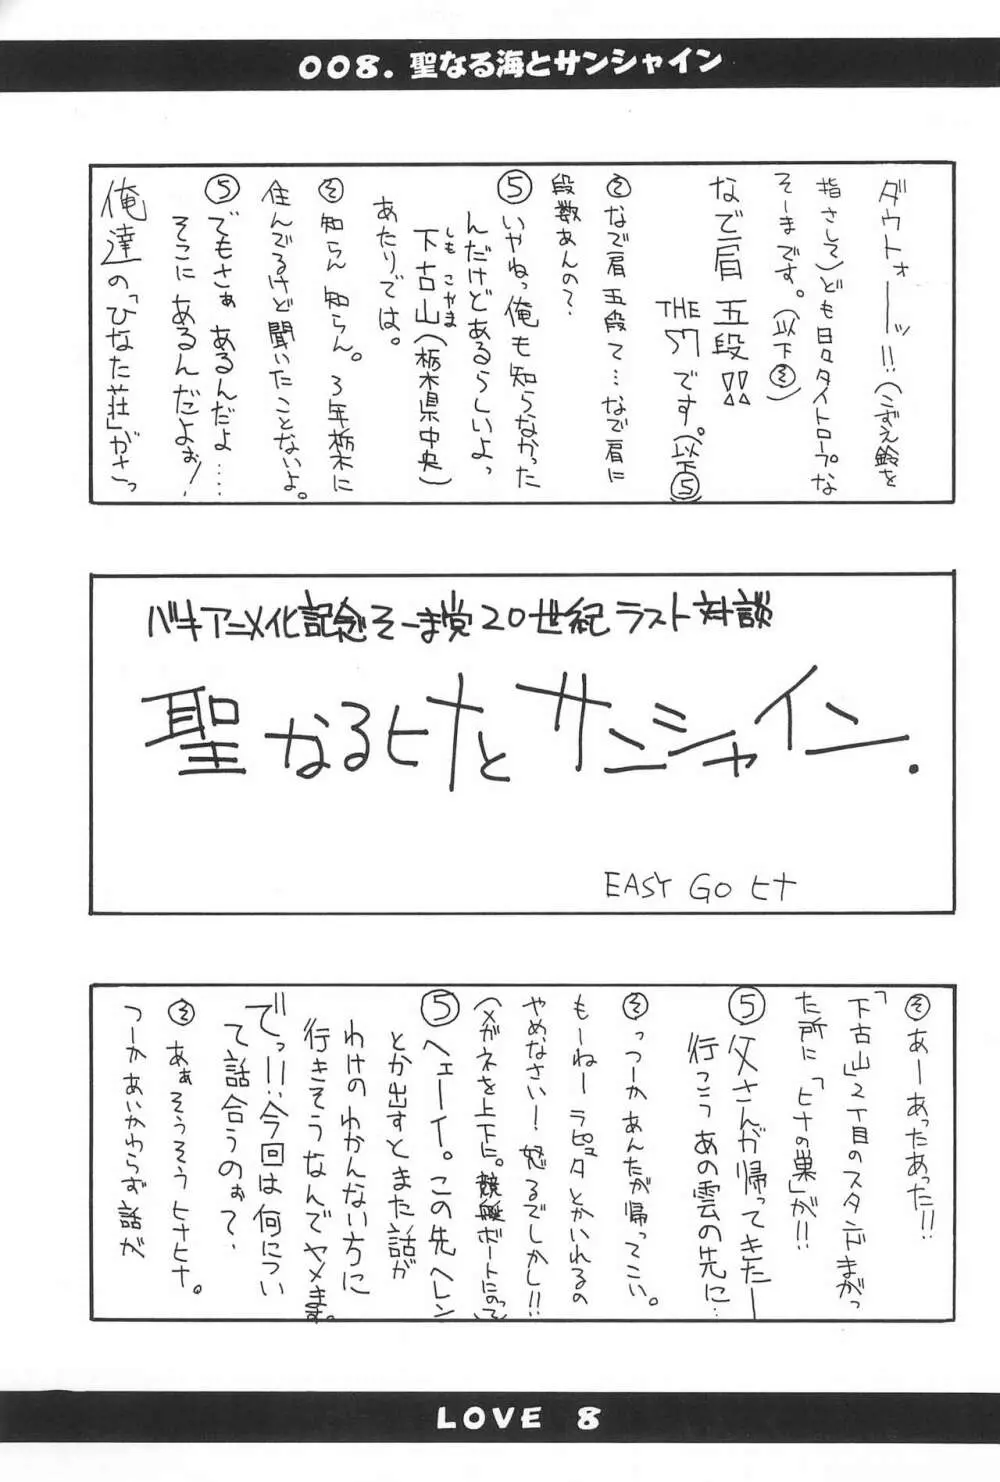 008. 聖なる海とサンシャイン
ダウトォーッ!!(こずえ鈴を
指さして)ども日々タイトロープな
そーまです。(以下そ)
なで肩 五段!!
THE 57です。(以下5)
そ なで肩五段て…なで肩に
段数あんの?
5 いやねっ俺も知らなかった
んだけどあるらしいよっ
下古山(栃木県中央)
しも こやま
あたりでは。
そ 知らん知らん。3年栃木に
住んでるけど聞いたことないよ。
5 でもさぁあるんだよ……
そこにあるんだよぉ!
俺達の「ひなた荘」がさっ
バキアニメ化記念そーま党20世紀ラスト対談
聖なるヒナとサンシャイン.
EASY GO ヒナ
そ あーあったあった!!
「下古山」2丁目のスタンドまがっ
た所に「ヒナの巣」が!!
5 父さんが帰ってきたー
行こう あの雲の先に…
そ っつーかあんたが帰ってこい。
もーねーラピュタとかいれるの
やめなさい!怒るでしかし!!
(メガネを上下に。競艇ボートにのって)
5 ヘェーイ。この先ヘレン
とか出すとまた話が
わけのわかんない方に
行きそうなんでヤメます。
でっ!!今回は何につい
て話合うのぉ?
そ あぁそうそうヒナヒナ。
つーかあいかわらず話が
LOVE 8